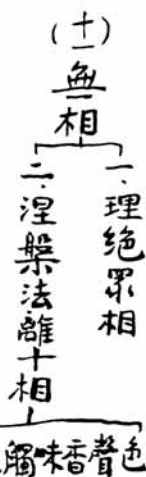 (十一)
無相
一、理絕眾相
二、涅槃法離十相
色聲香味觸